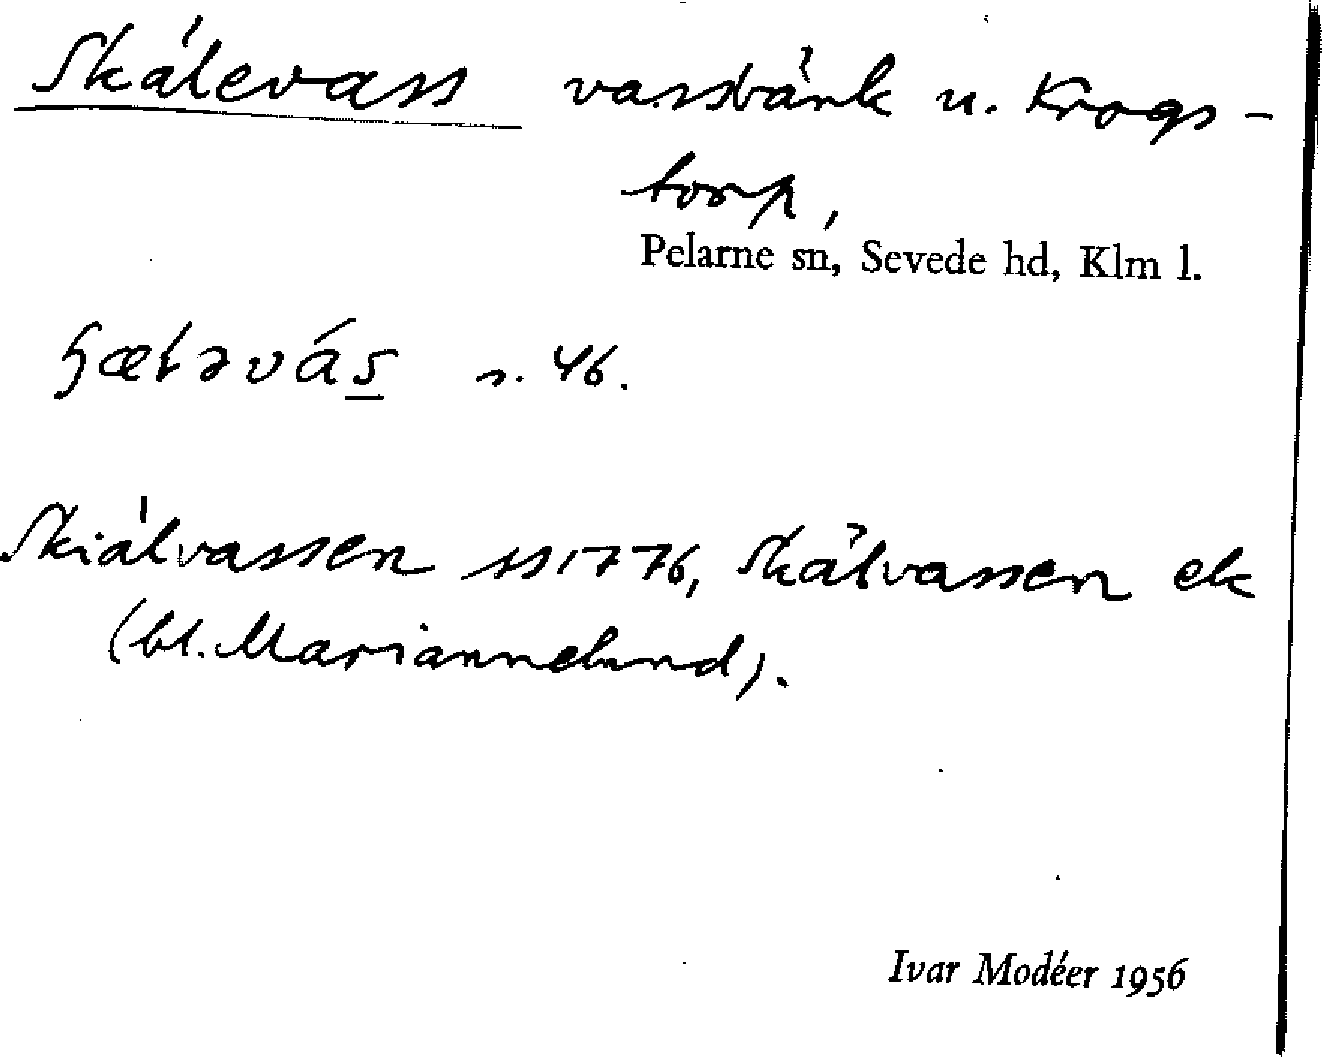 Skälevass vassbänk u. Krogs-
torp,
Pelarne sn, Sevede hd, Klm l.
s. 46.
Skiälvassen ss 1776, Skälvassen ek
(bl. Mariannelund).
Ivar Modéer 1956